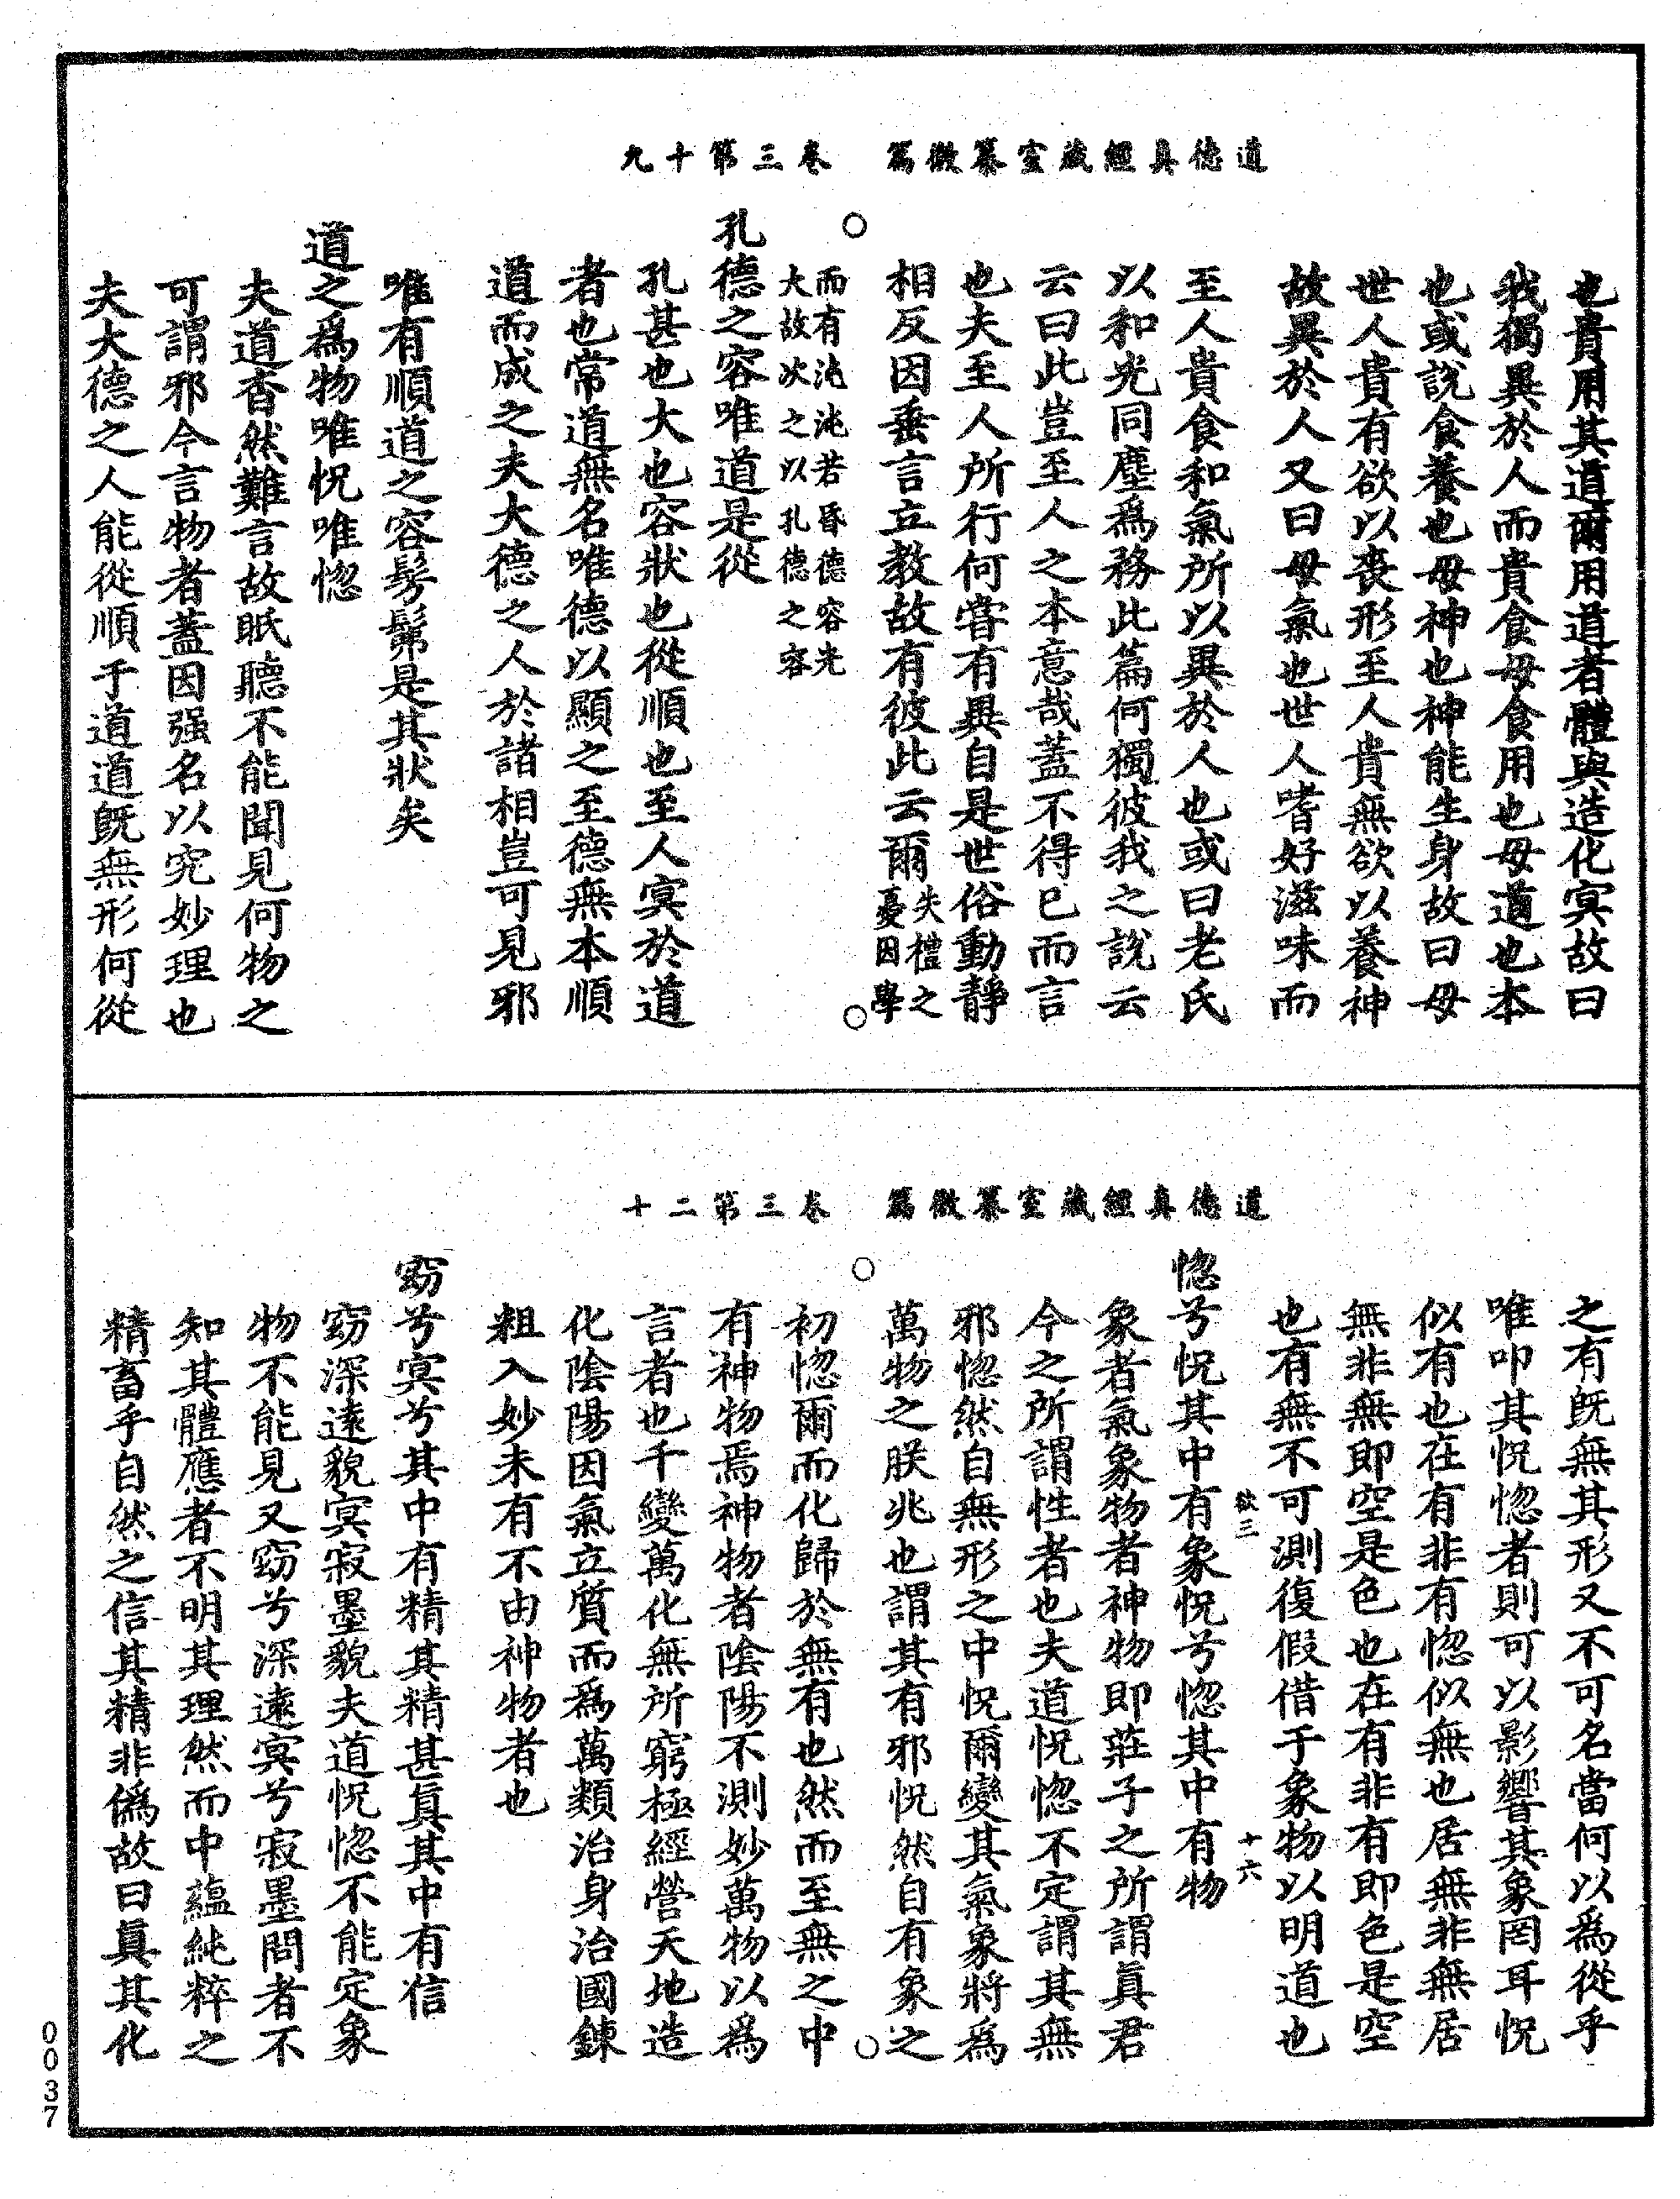 道德真經藏室纂微篇　卷三第十九
也貴用其道爾用道者體與造化冥故曰
我獨異於人而貴食母食用也母道也本
也或說食養也母神也神能生身故曰母
世人貴有欲以喪形至人貴無欲以養神
故異於人又曰母氣也世人嗜好滋味而
至人貴食和氣所以異於人也或曰老氏
以和光同塵爲務此篇何獨彼我之說云
云曰此豈至人之本意哉蓋不得已而言
也夫至人所行何嘗有異自是世俗動靜
相反因垂言立教故有彼此云爾失禮之
憂因學
而有沌沌若昏德容光
大故次之以孔德之容
孔德之容唯道是從
孔甚也大也容狀也從順也至人冥於道
者也常道無名唯德以顯之至德無本順
道而成之夫大德之人於諸相豈可見邪
唯有順道之容髣髴是其狀矣
道之爲物唯怳唯惚
夫道杳然難言故眂聽不能聞見何物之
可謂邪今言物者蓋因强名以究妙理也
夫大德之人能從順于道道旣無形何從
道德真經藏室纂微篇　卷三第二十
之有旣無其形又不可名當何以爲從乎
唯叩其怳惚者則可以影響其象罔耳怳
似有也在有非有惚似無也居無非無居
無非無即空是色也在有非有即色是空
也有無不可測復假借于象物以明道也
欲三　十六
惚兮怳其中有象怳兮惚其中有物
象者氣象物者神物即莊子之所謂眞君
今之所謂性者也夫道怳惚不定謂其無
邪惚然自無形之中怳爾變其氣象將爲
萬物之朕兆也謂其有邪怳然自有象之
初惚爾而化歸於無有也然而至無之中
有神物焉神物者陰陽不測妙萬物以爲
言者也千變萬化無所窮極經營天地造
化陰陽因氣立質而爲萬類治身治國鍊
粗入妙未有不由神物者也
窈兮冥兮其中有精其精甚眞其中有信
窈深遠貌冥寂墨貌夫道怳惚不能定象
物不能見又窈兮深遠冥兮寂墨問者不
知其體應者不明其理然而中蘊純粹之
精畜乎自然之信其精非僞故曰眞其化
0037